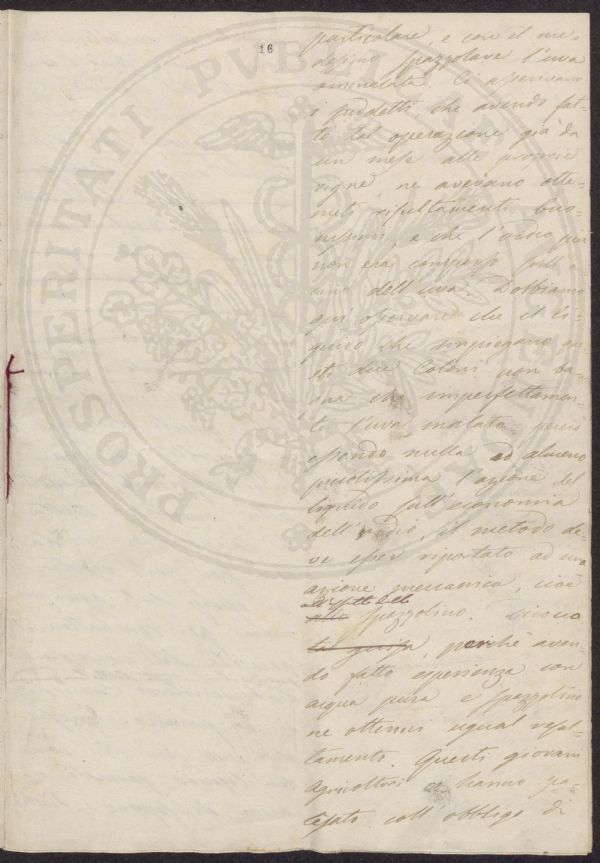 16
particolare, e con il me-
desimo spazzolare l'uva
ammalata. Ci asserivano
i suddetti, che avendo fat-
to tal operazione già da
un mese alle proprie
vigne, ne avevano otte-
nuti risultamenti buo-
nissimi, e che l'oidio più
non era comparso sull'a-
cino dell'uva. Dobbiamo
qui osservare che il li-
quido che impiegano que-
sti due Coloni non ba-
gna che imperfettamen-
te l'uva malata: perciò
essendo nulla od almeno
piccolissima l'azione del
liquido sull'economia
dell'oidio, il metodo de-
ve esser riportato ad una
azione meccanica, cioè
all'effetto del
alla spazzolino. Dicesi
tal guisa, perchè aven-
do fatto esperienza con
acqua pura e spazzolino
ne ottenni ugual resul-
tamento. Questi giovani
agricoltori ci hanno pa-
lesato coll'obbligo di
PROSPERITATI PVBLICAE